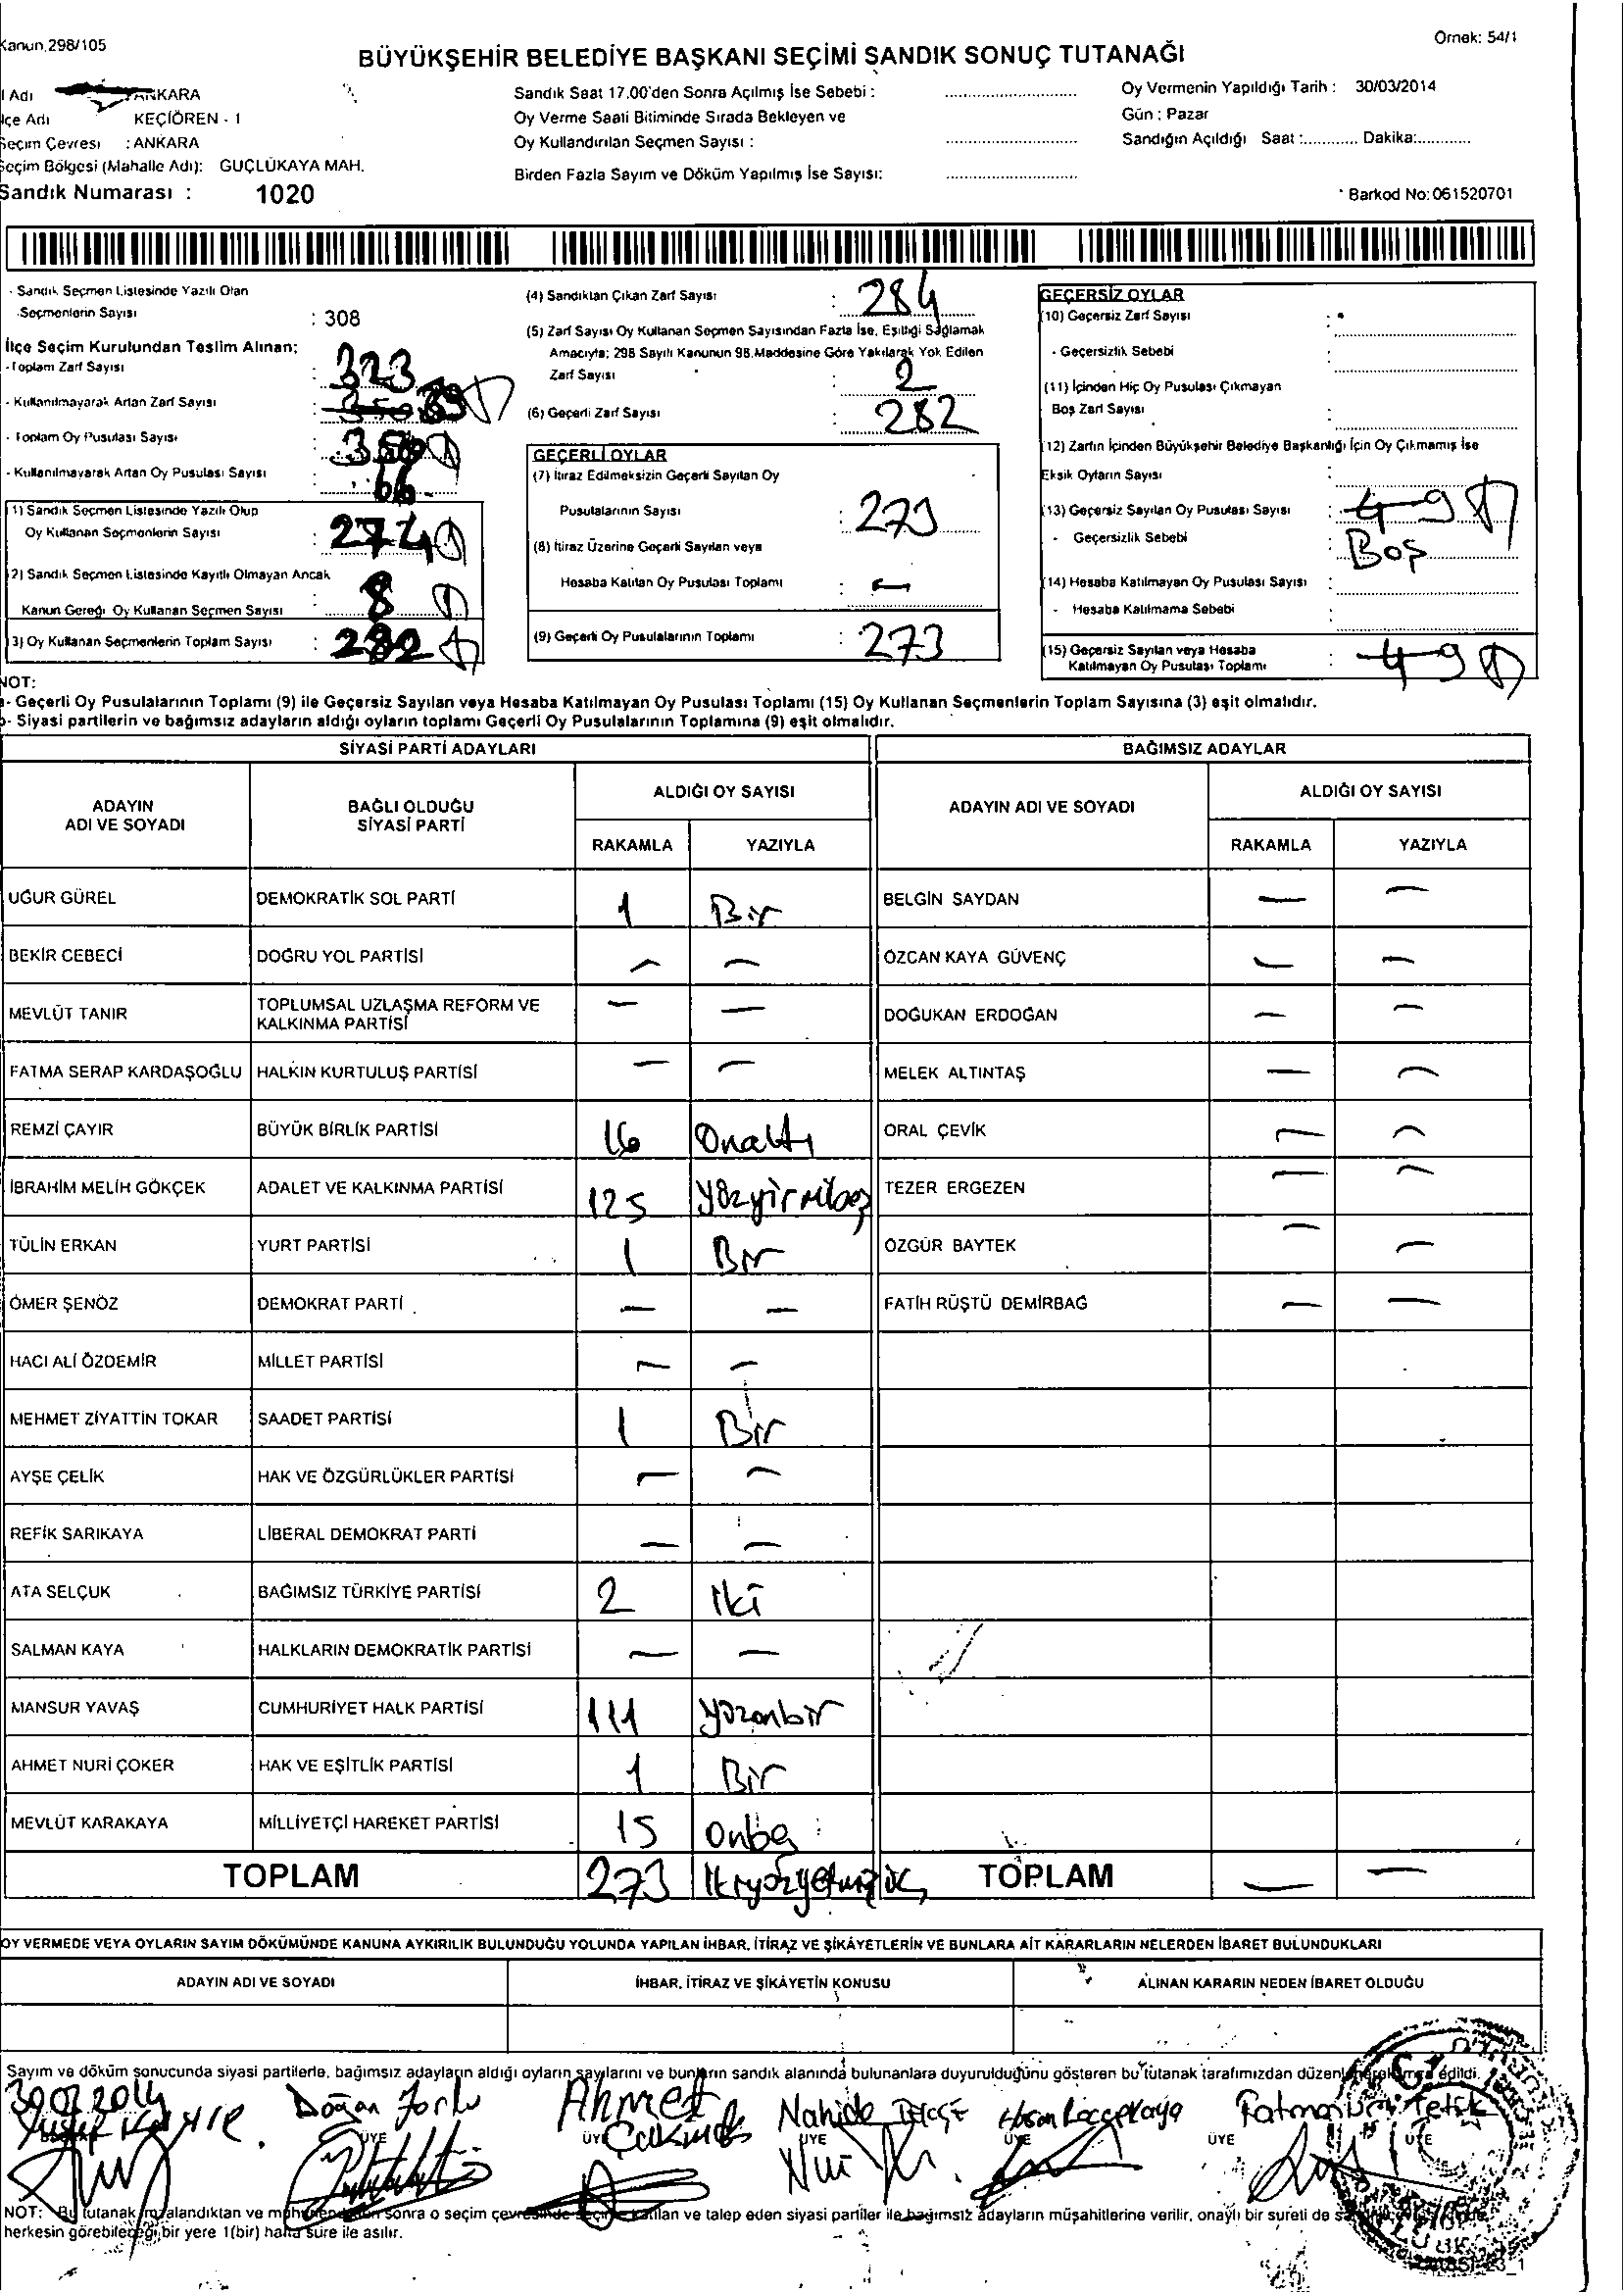 Kanun.298/105
Örnek: 54/1
BÜYÜKŞEHİR BELEDİYE BAŞKANI SEÇİMİ SANDIK SONUÇ TUTANAĞI
İl Adı ANKARA
İlçe Adı KEÇİÖREN - 1
Seçim Çevresi : ANKARA
Seçim Bölgesi (Mahalle Adı): GÜÇLÜKAYA MAH.
Sandık Numarası : 1020
Sandık Saat 17.00'den Sonra Açılmış İse Sebebi :
Oy Verme Saati Bitiminde Sırada Bekleyen ve
Oy Kullandırılan Seçmen Sayısı :
Birden Fazla Sayım ve Döküm Yapılmış İse Sayısı:
Oy Vermenin Yapıldığı Tarih : 30/03/2014
Gün : Pazar
Sandığın Açıldığı Saat :............ Dakika:............
Barkod No: 061520701
- Sandık Seçmen Listesinde Yazılı Olan
Seçmenlerin Sayısı : 308
İlçe Seçim Kurulundan Teslim Alınan;
- Toplam Zarf Sayısı : 323
- Kullanılmayarak Artan Zarf Sayısı :
- Toplam Oy Pusulası Sayısı :
- Kullanılmayarak Artan Oy Pusulası Sayısı : 66
(1) Sandık Seçmen Listesinde Yazılı Olup
Oy Kullanan Seçmenlerin Sayısı : 274
(2) Sandık Seçmen Listesinde Kayıtlı Olmayan Ancak
Kanun Gereği Oy Kullanan Seçmen Sayısı : 8
(3) Oy Kullanan Seçmenlerin Toplam Sayısı : 282
(4) Sandıktan Çıkan Zarf Sayısı : 284
(5) Zarf Sayısı Oy Kullanan Seçmen Sayısından Fazla İse, Eşitliği Sağlamak
Amacıyla; 298 Sayılı Kanunun 98.Maddesine Göre Yakılarak Yok Edilen
Zarf Sayısı : 2
(6) Geçerli Zarf Sayısı : 282
GEÇERLİ OYLAR
(7) İtiraz Edilmeksizin Geçerli Sayılan Oy
Pusulalarının Sayısı : 273
(8) İtiraz Üzerine Geçerli Sayılan veya
Hesaba Katılan Oy Pusulası Toplamı : —
(9) Geçerli Oy Pusulalarının Toplamı : 273
GEÇERSİZ OYLAR
(10) Geçersiz Zarf Sayısı :
- Geçersizlik Sebebi :
(11) İçinden Hiç Oy Pusulası Çıkmayan
Boş Zarf Sayısı :
(12) Zarfın İçinden Büyükşehir Belediye Başkanlığı İçin Oy Çıkmamış İse
Eksik Oyların Sayısı :
(13) Geçersiz Sayılan Oy Pusulası Sayısı : 9
- Geçersizlik Sebebi : Boş
(14) Hesaba Katılmayan Oy Pusulası Sayısı :
- Hesaba Katılmama Sebebi :
(15) Geçersiz Sayılan veya Hesaba
Katılmayan Oy Pusulası Toplamı : 9
NOT:
a- Geçerli Oy Pusulalarının Toplamı (9) ile Geçersiz Sayılan veya Hesaba Katılmayan Oy Pusulası Toplamı (15) Oy Kullanan Seçmenlerin Toplam Sayısına (3) eşit olmalıdır.
b- Siyasi partilerin ve bağımsız adayların aldığı oyların toplamı Geçerli Oy Pusulalarının Toplamına (9) eşit olmalıdır.
SİYASİ PARTİ ADAYLARI
BAĞIMSIZ ADAYLAR
ADAYIN
ADI VE SOYADI
BAĞLI OLDUĞU
SİYASİ PARTİ
ALDIĞI OY SAYISI
RAKAMLA YAZIYLA
ADAYIN ADI VE SOYADI
ALDIĞI OY SAYISI
RAKAMLA YAZIYLA
UĞUR GÜREL DEMOKRATİK SOL PARTİ 1 Bir BELGİN SAYDAN — —
BEKİR CEBECİ DOĞRU YOL PARTİSİ — — ÖZCAN KAYA GÜVENÇ — —
MEVLÜT TANIR TOPLUMSAL UZLAŞMA REFORM VE KALKINMA PARTİSİ — — DOĞUKAN ERDOĞAN — —
FATMA SERAP KARDAŞOĞLU HALKIN KURTULUŞ PARTİSİ — — MELEK ALTINTAŞ — —
REMZİ ÇAYIR BÜYÜK BİRLİK PARTİSİ 16 Onaltı ORAL ÇEVİK — —
İBRAHİM MELİH GÖKÇEK ADALET VE KALKINMA PARTİSİ 125 Yüzyirmibeş TEZER ERGEZEN — —
TÜLİN ERKAN YURT PARTİSİ 1 Bir ÖZGÜR BAYTEK — —
ÖMER ŞENÖZ DEMOKRAT PARTİ — — FATİH RÜŞTÜ DEMİRBAĞ — —
HACI ALİ ÖZDEMİR MİLLET PARTİSİ — —
MEHMET ZİYATTİN TOKAR SAADET PARTİSİ 1 Bir
AYŞE ÇELİK HAK VE ÖZGÜRLÜKLER PARTİSİ — —
REFİK SARIKAYA LİBERAL DEMOKRAT PARTİ — —
ATA SELÇUK BAĞIMSIZ TÜRKİYE PARTİSİ 2 İki
SALMAN KAYA HALKLARIN DEMOKRATİK PARTİSİ — —
MANSUR YAVAŞ CUMHURİYET HALK PARTİSİ 111 Yüzonbir
AHMET NURİ ÇOKER HAK VE EŞİTLİK PARTİSİ 1 Bir
MEVLÜT KARAKAYA MİLLİYETÇİ HAREKET PARTİSİ 15 Onbeş
TOPLAM 273 İkiyüzyetmişüç TOPLAM — —
OY VERMEDE VEYA OYLARIN SAYIM DÖKÜMÜNDE KANUNA AYKIRILIK BULUNDUĞU YOLUNDA YAPILAN İHBAR, İTİRAZ VE ŞİKÂYETLERİN VE BUNLARA AİT KARARLARIN NELERDEN İBARET BULUNDUKLARI
ADAYIN ADI VE SOYADI İHBAR, İTİRAZ VE ŞİKÂYETİN KONUSU ALINAN KARARIN NEDEN İBARET OLDUĞU
Sayım ve döküm sonucunda siyasi partilerle, bağımsız adayların aldığı oyların sayılarını ve bunların sandık alanında bulunanlara duyurulduğunu gösteren bu tutanak tarafımızdan düzenlenerek imza edildi.
Doğan Ahmet Nahide Fatma
ÜYE ÜYE ÜYE ÜYE ÜYE ÜYE
NOT: Bu tutanak imzalandıktan ve mühürlendikten sonra o seçim çevresinde seçime katılan ve talep eden siyasi partiler ile bağımsız adayların müşahitlerine verilir, onaylı bir sureti de
herkesin görebileceği bir yere 1(bir) hafta süre ile asılır.